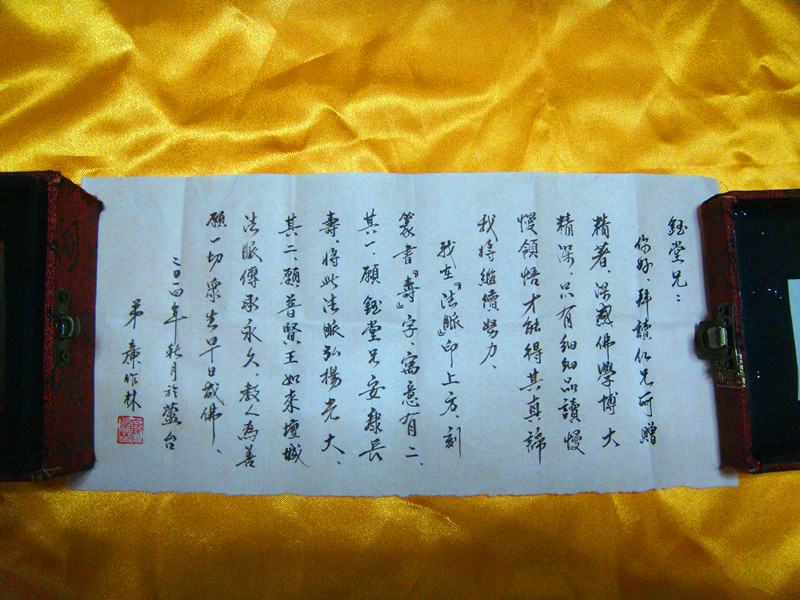 鈺堂兄：
你好、拜讀仁兄所贈
精著、深感佛學博大
精深、只有細細品讀慢
慢領悟才能得其真諦
我將繼續努力、
我在『法脈』印上方、刻
篆書『壽』字、寓意有二、
其一、願鈺堂兄安康長
壽、將此法脈弘揚光大、
其二、願普賢王如來壇城
法脈傳承永久、教人為善
願一切眾生早日成佛、
二〇一四年秋月於蘆台
弟 作林